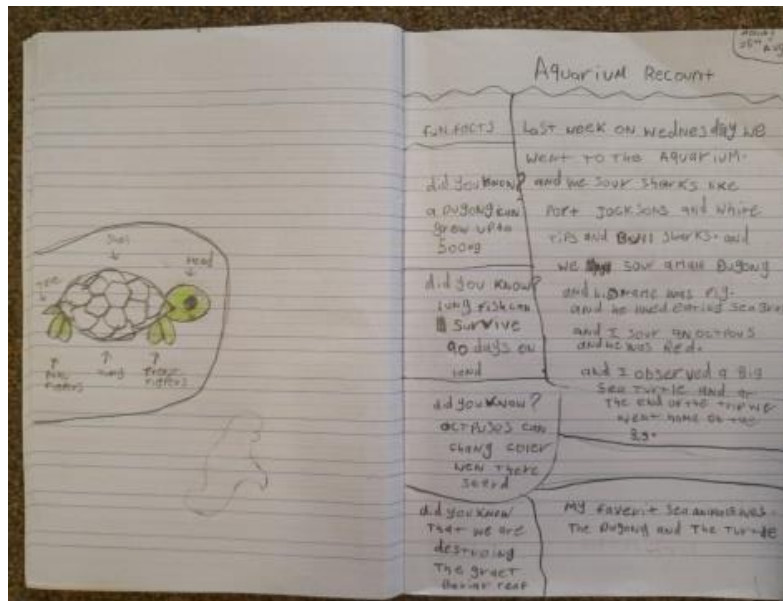 shel
head
tale
back flippers
tumy
frount flippers
26th Aug
Aquarium Recount
FUN FACTS
did you know?
a Dugong can
grow up to
500kg
did you know?
lung fish can
survive
90 days on
land
did you know?
octpuses can
chang coler
wen there
scard
did you know
that we are
destroing
The graet
Bariar reaf
Last week on wednesday we
went to the Aquarium.
and we sour sharks like
Port Jacksons and white
Tips and Bull sharks. and
we sour a male Dugong
and his name was Pig.
and he loved eating sea grass
and I sour an octpus
and he was Red.
and I observed a Big
Sea Turtle and at
The end of the trip we
went home on the
My faverit sea animal was
The Dugong and The Turtle